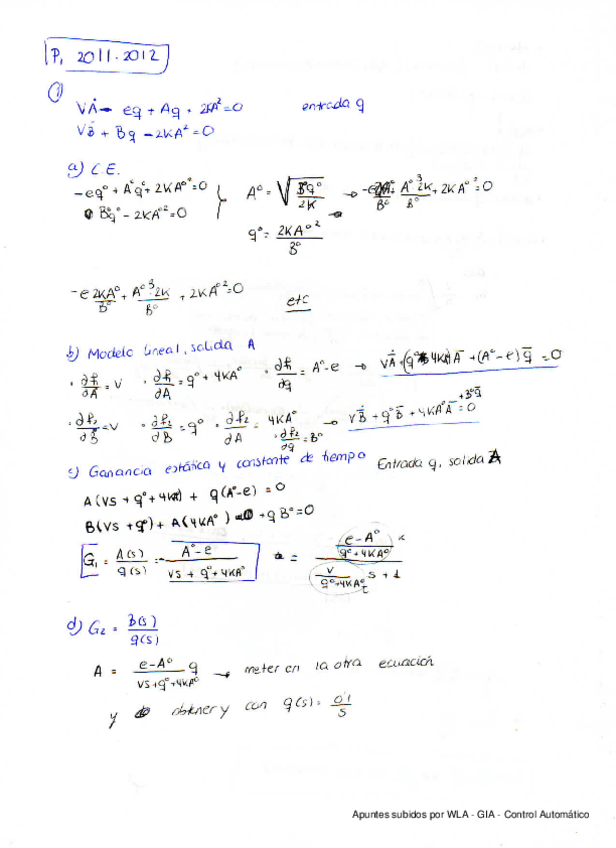 P, 2011-2012
①
VȦ - eq + Aq + 2KA² = 0 entrada q
VḂ + Bq - 2KA² = 0
a) C.E.
-eq° + A°q° + 2KA°² = 0
B°q° - 2KA°² = 0
A° = √(B°q°/2K)
q° = 2KA°²/B°
-e 2KA°/B° + A°³ 2K/B° + 2KA°² = 0 etc
b) Modelo lineal, salida A
· ∂f₁/∂Ȧ = V · ∂f₁/∂A = q° + 4KA° · ∂f₁/∂q = A° - e → + (A° - e) q̄ = 0
· ∂f₂/∂Ḃ = V · ∂f₂/∂B = q° · ∂f₂/∂A = 4KA° · ∂f₂/∂q = B° → VḂ + q°B̄ + 4KA°Ā + B°q̄ = 0
c) Ganancia estática y constante de tiempo Entrada q, salida A
A(VS + q° + 4KA°) + q(A° - e) = 0
B(VS + q°) + A(4KA°) + qB° = 0
G₁ = A(s)/q(s) = A° - e / VS + q° + 4KA° = (e - A° / q° + 4KA°) / (V / q° + 4KA° s + 1)
d) G₂ = B(s)/q(s)
A = e - A° / VS + q° + 4KA° q → meter en la otra ecuación
y obtener y con q(s) = 0'1/s
Apuntes subidos por WLA - GIA - Control Automático